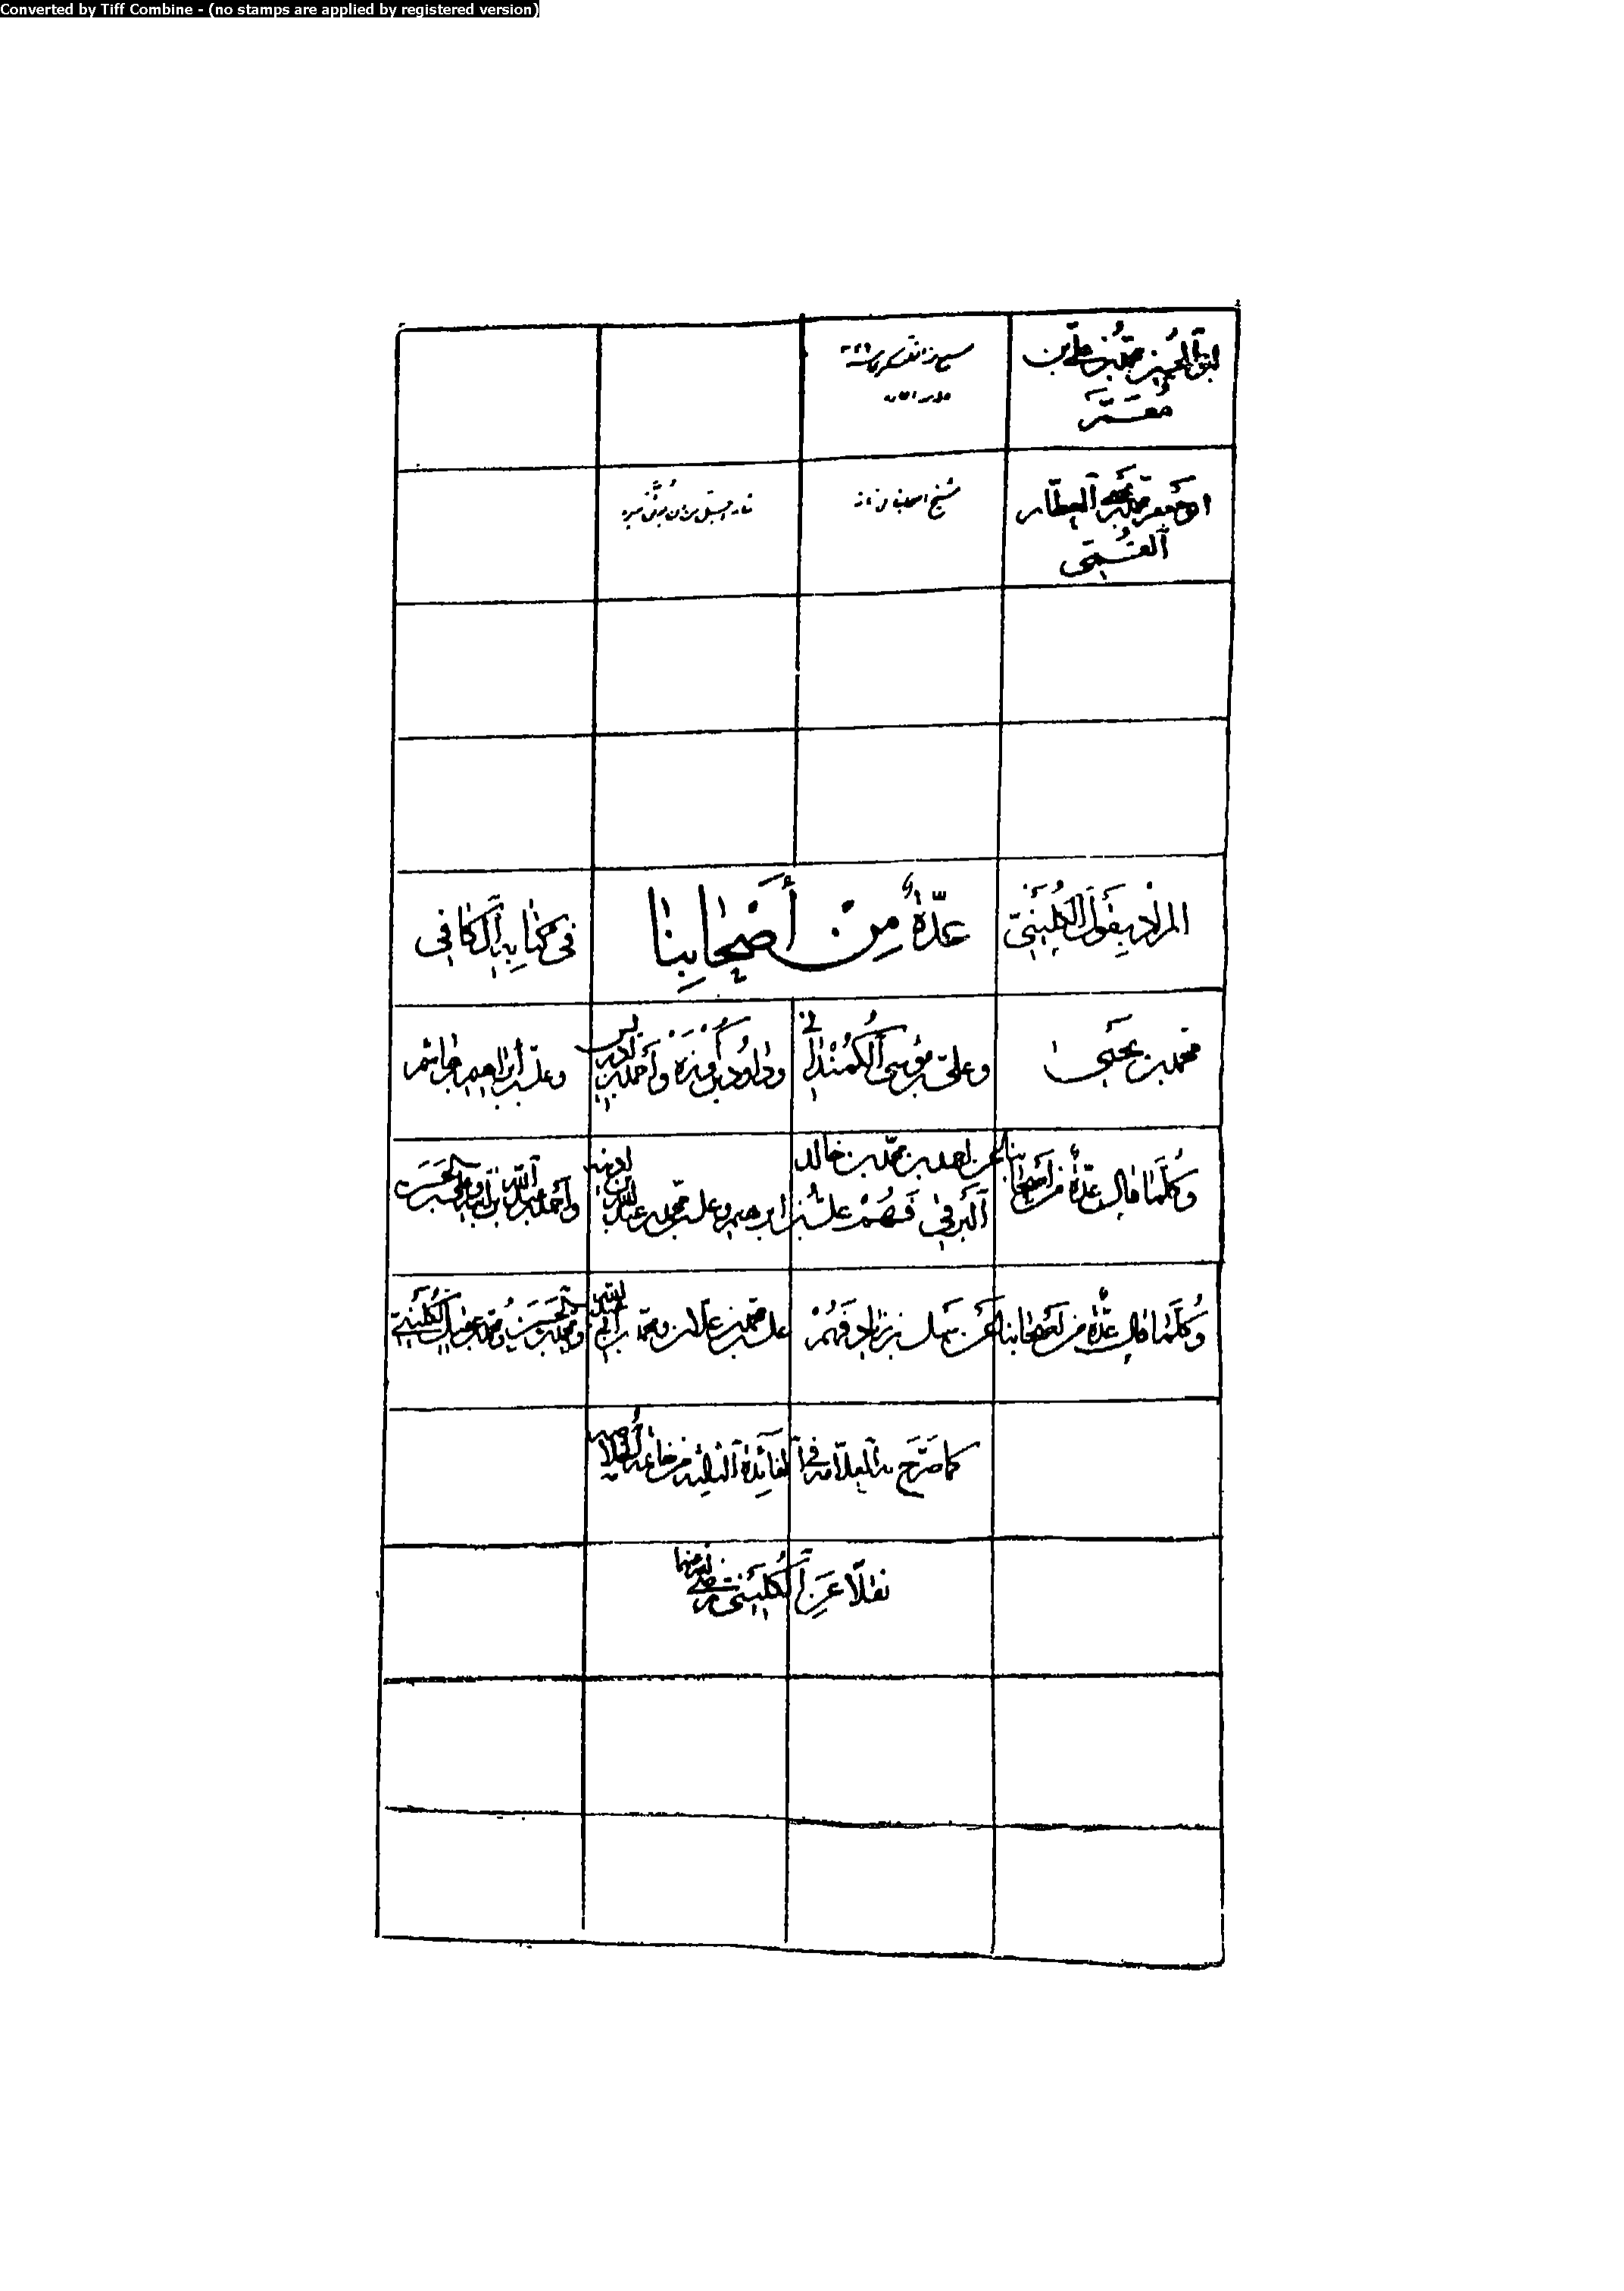 Converted by Tiff Combine - (no stamps are applied by registered version)
أبو الحسين محمد بن علي بن
مُعَمَّر
ابو جعفر محمد بن يحيى العطّار
القُمّي
شيخ اصحابنا
المراد بِقَول الكُلَيني
عدّةٌ مِن أَصْحابِنا
في كتابِهِ الكافي
محمد بن يحيى
وعلي بن موسى الكُمُنْذاني
وداوُد بن كُورَة وأحمد بن ادريس
وعلي بن ابراهيم بن هاشم
وكُلَّما قال عدّةٌ من أصحابنا عن احمد بن محمد بن خالد
البَرقي فَهُمْ علي بن ابرهيم وعلي بن محمد بن عبد الله ابن اذينه
وأحمد بن عبد الله وعلي بن الحسن
وكُلَّما قال عدّةٌ من أصحابنا عن سهل بن زياد فَهُمْ
علي بن محمد بن علان ومحمد بن أبي عبد الله
ومحمد بن الحَسَن ومحمد بن عقيل الكُلَيني
كما صَرَّحَ به العلّامه في الفائدة الثالثه من خاتمة
نقلًا عَنِ الكُلَيني